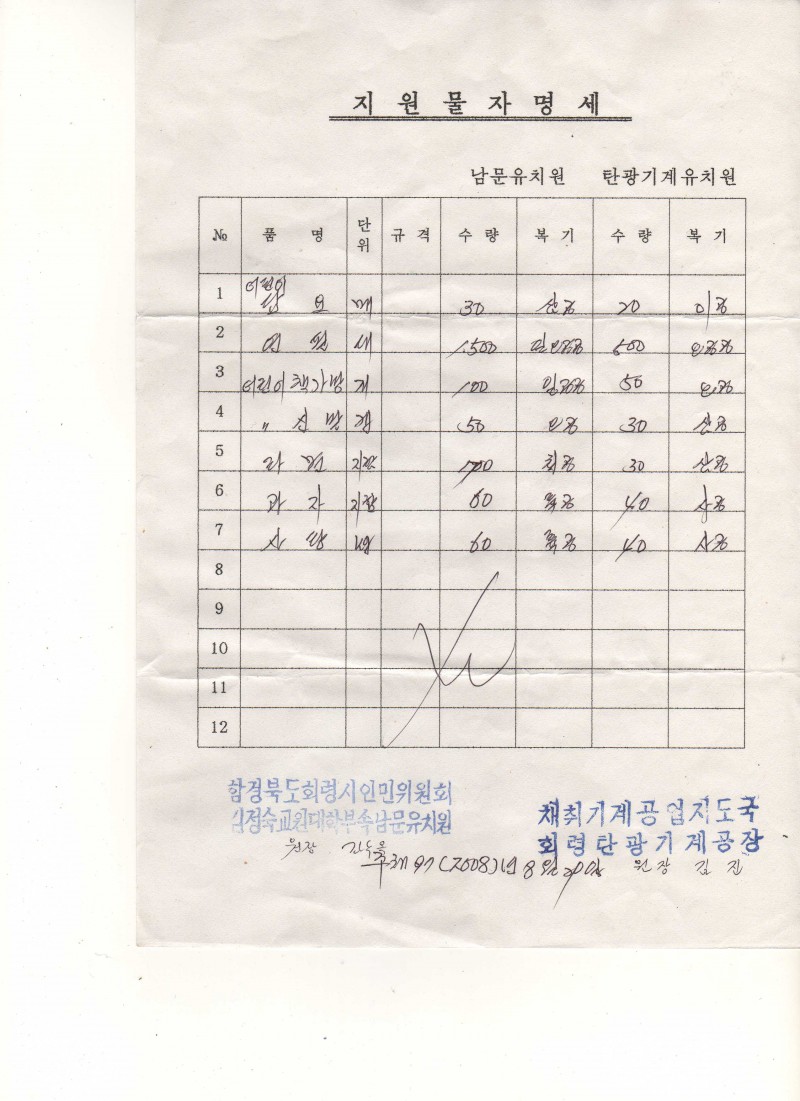 지 원 물 자 명 세
남문유치원 탄광기계유치원
№ 품 명 단위 규 격 수 량 복 기 수 량 복 기
1 어린이 요 매 30 삼공 20 이공
2 연 필 1,500 500 오공공
3 어린이 책가방 개 100 일공공 50 오공
4 〃 신발 50 오공 30 삼공
5 라 면 지함 700 칠공 30 삼공
6 과 자 지함 60 륙공 40 사공
7 사 탕 kg 60 륙공 40 사공
8
9
10
11
12
함경북도회령시인민위원회
김정숙교원대학부속남문유치원
채취기계공업지도국
회령탄광기계공장
원장
주체97(2008)년 8월 20일 원장 김 진